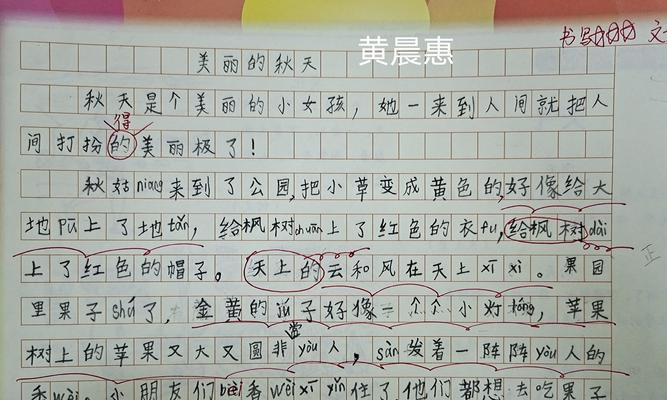 黄晨惠
书写
美丽的秋天
秋天是个美丽的小女孩，她一来到人间就把人
得
间打扮的美丽极了！
秋姑niang来到了公园，把小草变成黄色的，好像给大
地pū上了地tǎn，给枫树chuān上了红色的衣fu，给枫树dài
上了红色的帽子。天上的云和风在天上xī xì。果园
里果子shú了，金黄的jú子好像一个个小灯lóng，苹果
树上的苹果又大又圆非yòu人，sàn发着一阵阵yòu人的
香wèi。小朋友们bèi香wèi xī yǐn住了，他们都想去吃果子